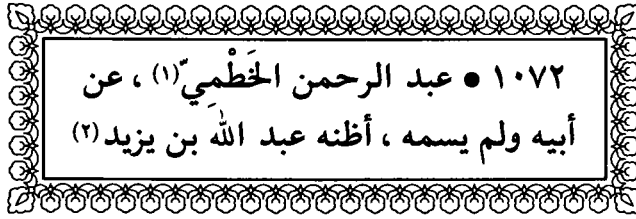 ١٠٧٢ ● عبد الرحمن الخَطْمِيّ(١) ، عن
أبيه ولم يسمه ، أظنه عبد الله بن يزيد(٢)